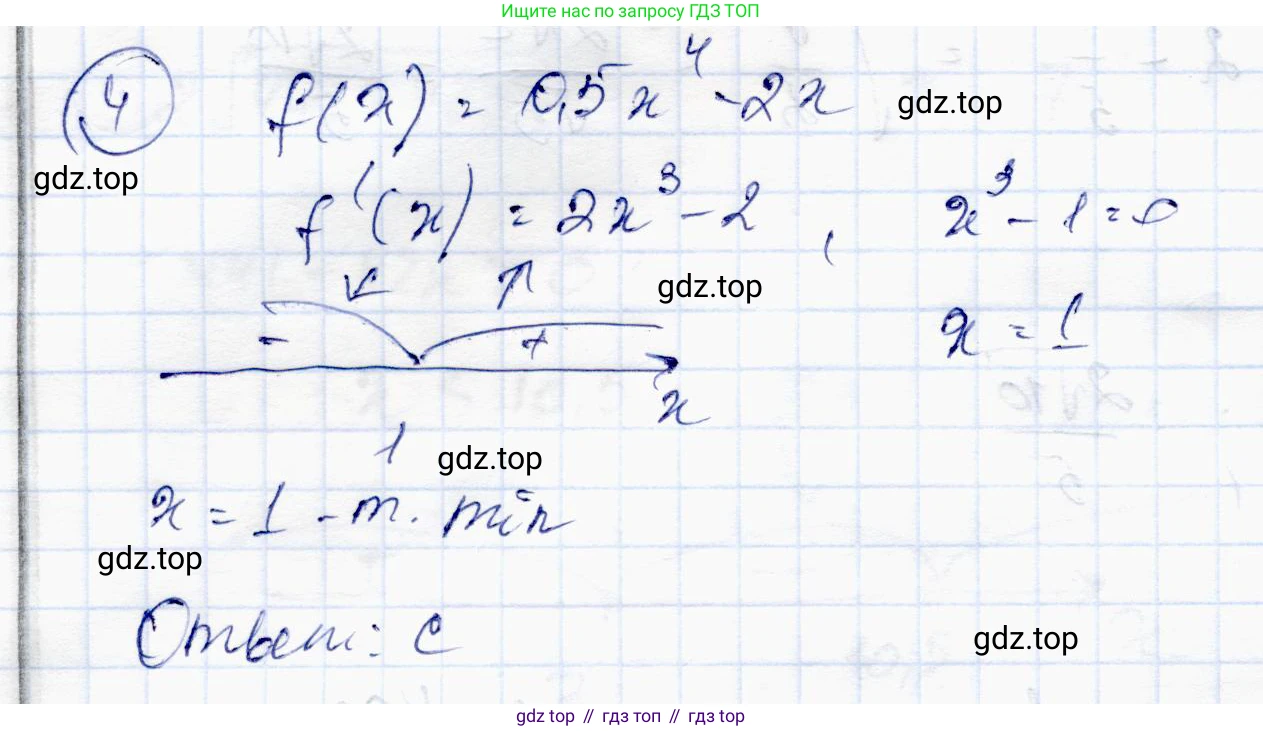 Ищите нас по запросу ГДЗ ТОП
4 f(x) = 0,5x⁴ - 2x gdz.top
gdz.top
f'(x) = 2x³ - 2, x³ - 1 = 0
gdz.top
- + x = 1
x
1 gdz.top
x = 1 - т. min
gdz.top
Ответ: C
gdz.top
gdz top // гдз топ // gdz top